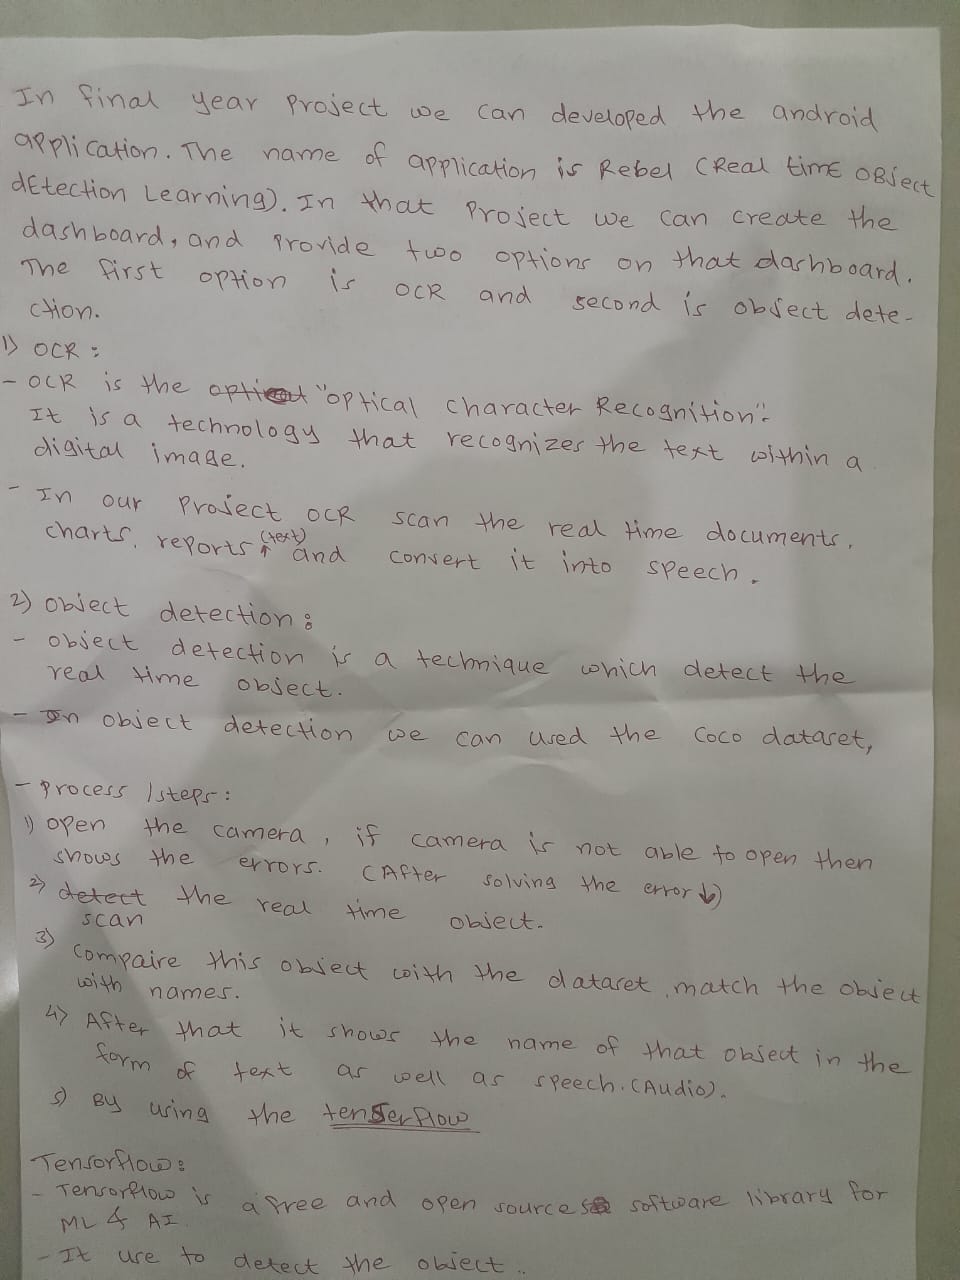 In final year project we can developed the android
application. The name of application is Rebel (Real timE OBject
dEtection Learning). In that project we can create the
dashboard, and provide two options on that dashboard.
The first option is OCR and second is object dete-
ction.
1) OCR :
- OCR is the "optical character Recognition":
It is a technology that recognizes the text within a
digital image.
- In our project OCR scan the real time documents,
charts, reports (text) and convert it into speech.
2) object detection :
- object detection is a technique which detect the
real time object.
- In object detection we can used the coco dataset,
- process / steps :
1) open the camera, if camera is not able to open then
shows the errors. (After solving the error ↓)
2) detect the real time object.
scan
3) compaire this object with the dataset, match the object
with names.
4) After that it shows the name of that object in the
form of text as well as speech. (Audio).
5) By using the tenserflow
Tensorflow :
- Tensorflow is a free and open source software library for
ML & AI
- It use to detect the object..